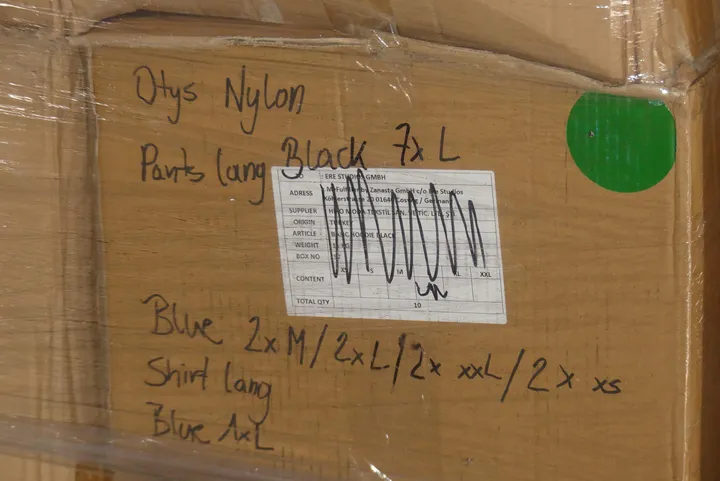 Otys Nylon
Pants lang Black 7x L
ERE STUDIOS GMBH
ADRESS
Zanasta GmbH c/o Ere Studios
20 0164 Coswig / Germany
SUPPLIER
TEKSTİL SAN. VE TİC. LTD. ŞTİ
ORIGIN
ARTICLE BASIC HOODIE BLACK
WEIGHT
BOX NO
S M XL XXL
CONTENT
TOTAL QTY 10
Blue 2xM/2xL/2x xxL/2x xs
Shirt lang
Blue 1xL